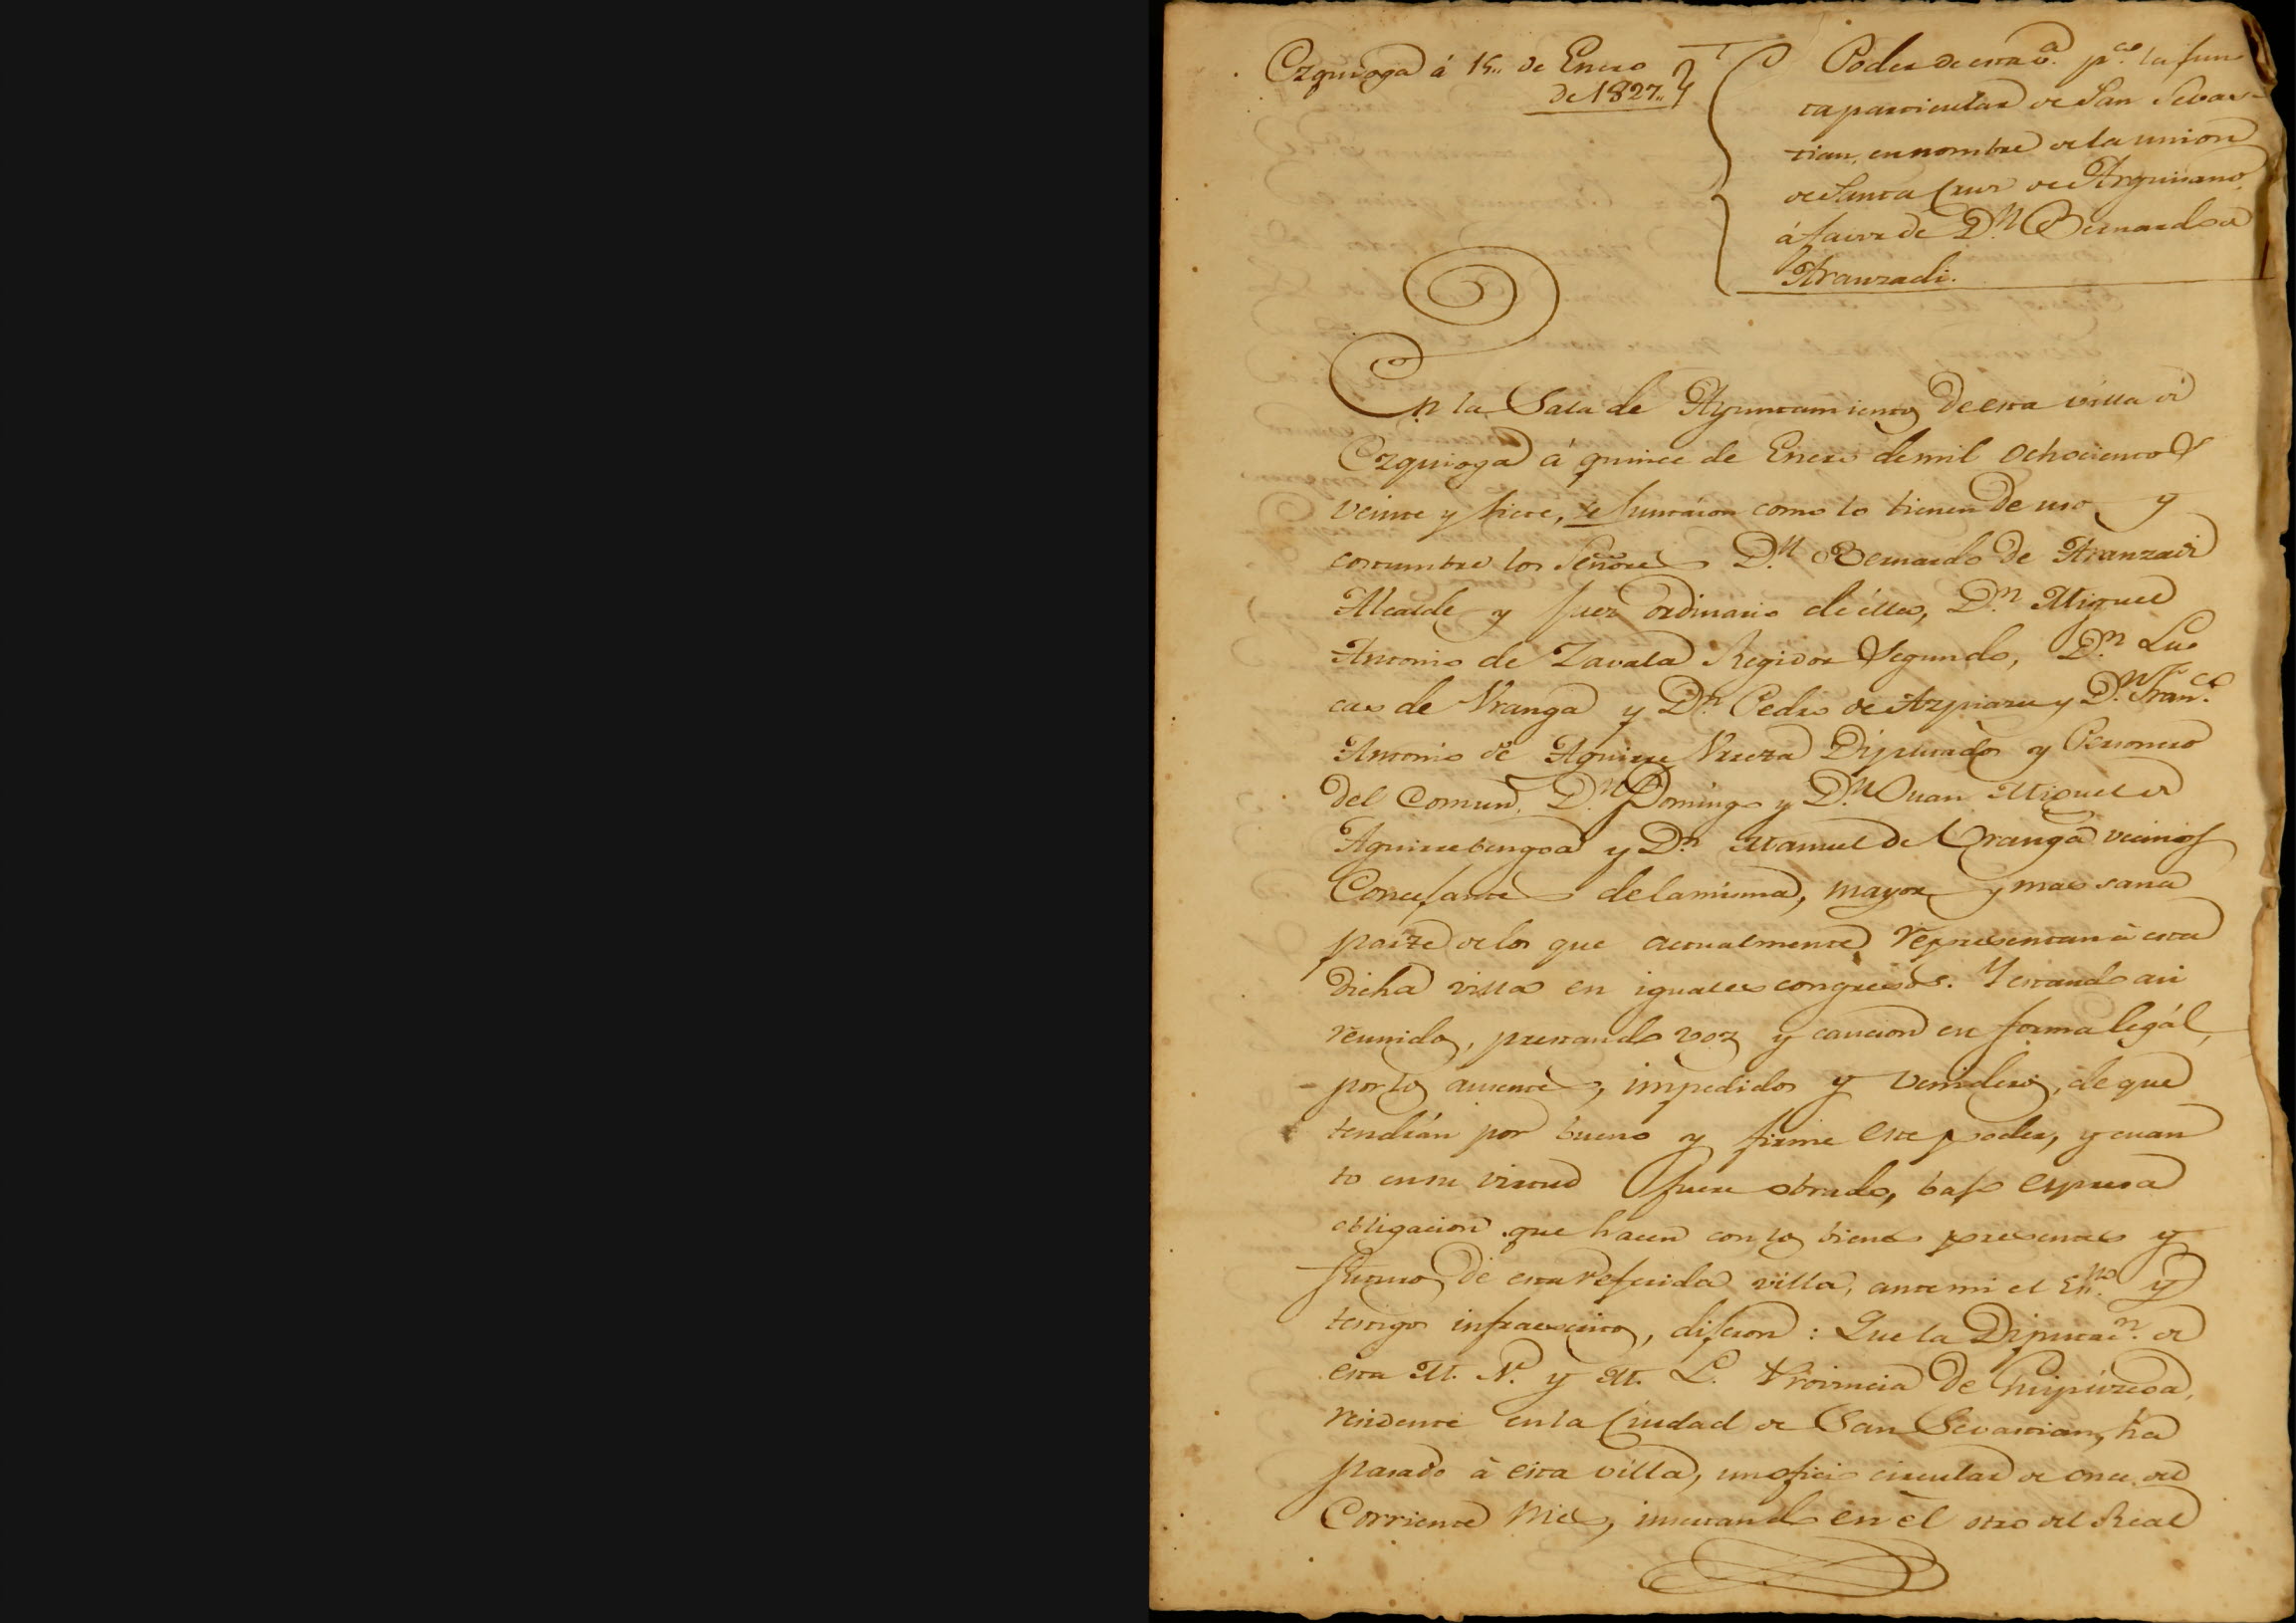 Ezquioga á 15,, de Enero
de 1827,,
Poder de esta v.ª p.ª la Jun
ta particular de San Sebas-
tian, en nombre de la union
de Santa Cruz de Arguisano,
á favor de D.n Bernardo de
Aranzadi.
En la Sala de Ayuntamiento de esta villa de
Ezquioga á quince de Enero de mil ochocientos
veinte y siete, se juntaron como lo tienen de uso y
costumbre los Señores D.n Bernardo de Aranzadi
Alcalde y Juez ordinario de élla, D.n Miguel
Antonio de Zavala Regidor Segundo, D.n Lu
cas de Uranga y D.n Pedro de Azpiazu y D.n Fran.co
Antonio de Aguirre Urreta Diputados y Personero
del Comun, D.n Domingo y D.n Juan Miguel de
Aguirrebengoa y D.n Manuel de Uranga vecinos
Concejantes de la misma, mayor y mas sana
parte de los que actualmente representan à esta
dicha villa en iguales congresos. Y estando asi
reunidos, prestando voz y caucion en forma legál,
por los ausentes, impedidos y venideros, de que
tendrán por bueno y firme este poder, y cuan
to en su virtud fuere obrado, bajo espresa
obligacion que hacen con los bienes presentes y
futuros de esta referida villa, ante mi el Esno. y
testigos infraescritos, dijeron: Que la Diputac.n de
esta M. N. y M. L. Provincia de Guipúzcoa,
residente en la Ciudad de San Sevastian, ha
pasado à esta villa, un oficio circular de once del
corriente mes, insertando en él otro del Real